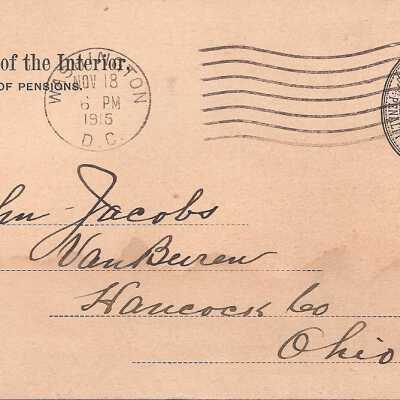 of the Interior.
OF PENSIONS.
WASHINGTON
NOV 18
6 PM
1915
D.C.
PENAL
hn Jacobs
VanBuren
Hancock Co
Ohio